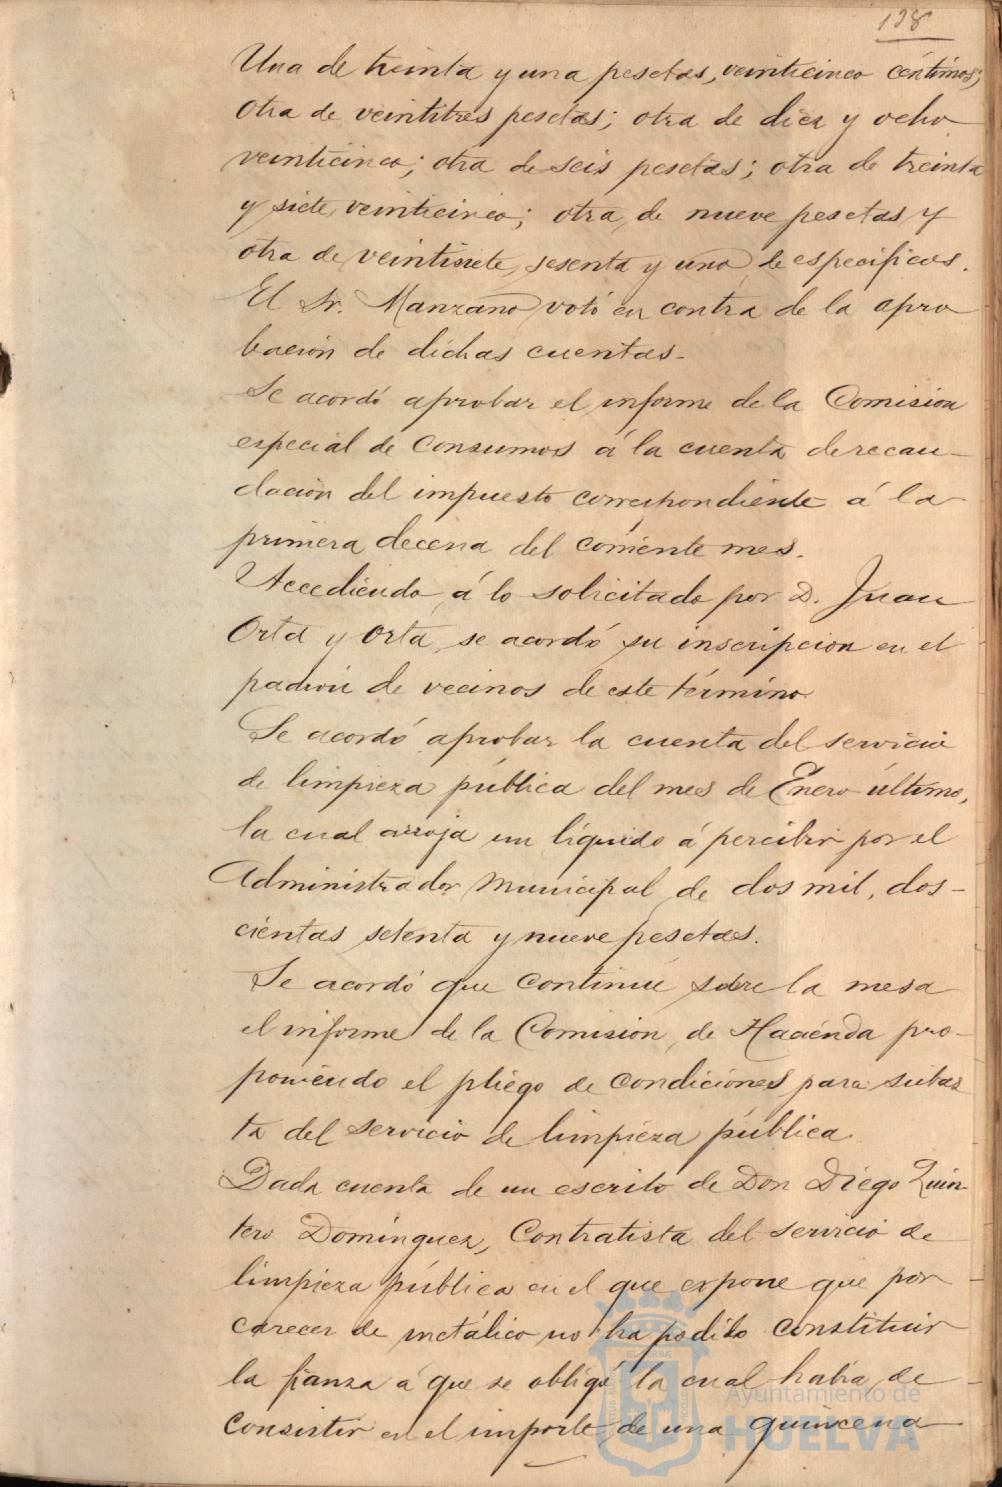 128
Una de treinta y una pesetas, veinticinco céntimos;
otra de veintitres pesetas; otra de diez y ocho
veinticinco; otra de seis pesetas; otra de treinta
y siete, veinticinco; otra, de nueve pesetas y
otra de veintisiete, sesenta y uno, de especificos.
El Sr. Manzano votó en contra de la apro
bación de dichas cuentas.
Se acordó aprobar el informe de la Comision
especial de Consumos á la cuenta de recau-
dación del impuesto correspondiente á la
primera decena del corriente mes.
Accediendo á lo solicitado por D. Juan
Orta y Orta, se acordó su inscripcion en el
padrón de vecinos de este término.
Se acordó aprobar la cuenta del servicio
de limpieza pública del mes de Enero último,
la cual arroja un líquido á percibir por el
Administrador Municipal de dos mil, dos-
cientas setenta y nueve pesetas.
Se acordó que continúe sobre la mesa
el informe de la Comisión de Hacienda pro-
poniendo el pliego de condiciones para subas
ta del servicio de limpieza pública.
Dada cuenta de un escrito de Don Diego Quin-
tero Domínguez, Contratista del servicio de
limpieza pública en el que expone que por
carecer de metálico no ha podido constituir
la fianza á que se obligó la cual había de
consistir en el importe de una quincena
Ayuntamiento de
HUELVA